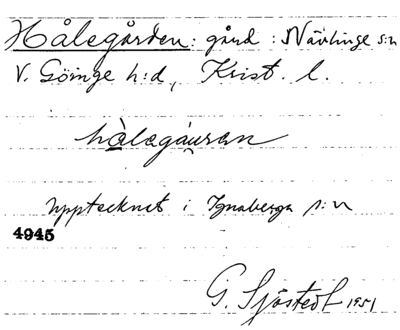 Hålegården: gård: Nävlinge s:n
V. Göinge h:d, Krist. l.
hàlagáu̯ran
upptecknat i Ignaberga s:n
4945
G. Sjöstedt 1951